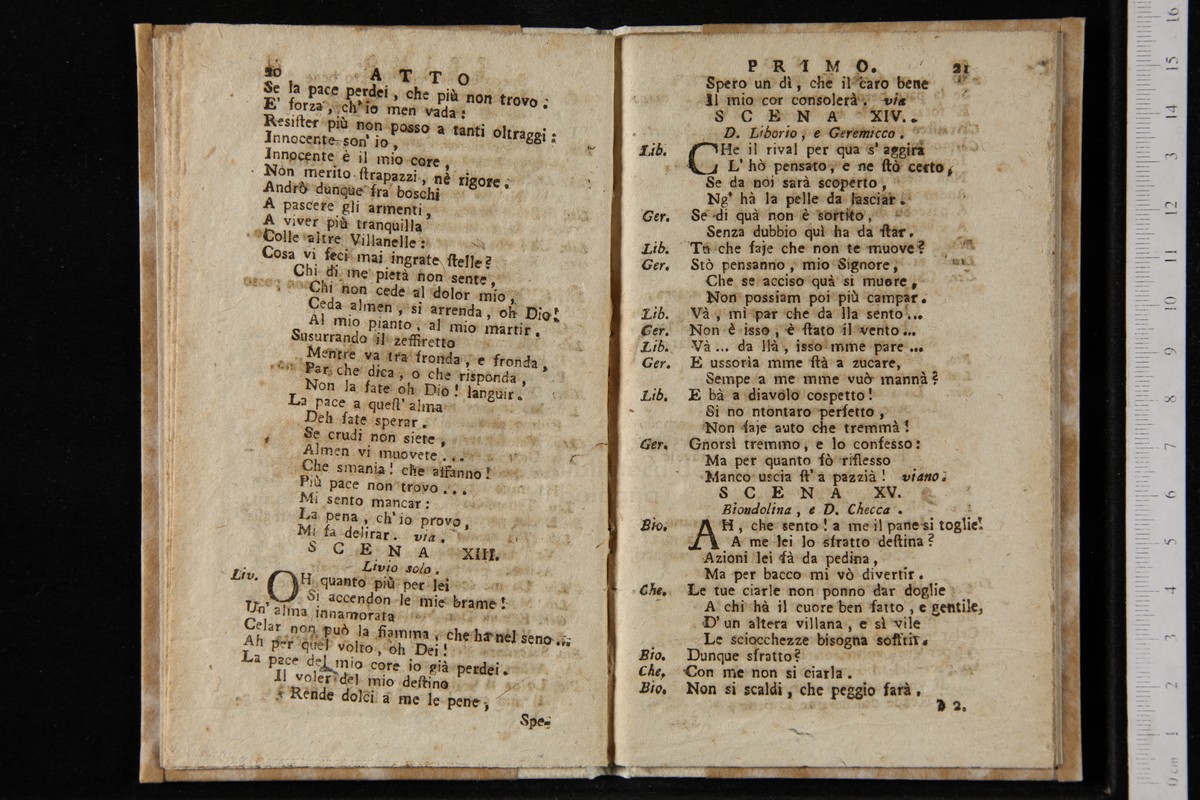 20 ATTO
Se la pace perdei, che più non trovo.
E' forza, ch'io men vada:
Resister più non posso a tanti oltraggi:
Innocente son' io,
Innocente è il mio core,
Non merito strapazzi, nè rigore.
Andrò dunque fra boschi
A pascere gli armenti,
A viver più tranquilla
Colle altre Villanelle:
Cosa vi feci mai ingrate stelle?
Chi di me pietà non sente,
Chi non cede al dolor mio,
Ceda almen, si arrenda, oh Dio!
Al mio pianto, al mio martir.
Susurrando il zeffiretto
Mentre va tra fronda, e fronda,
Par che dica, o che risponda,
Non la fate oh Dio! languir.
La pace a quest' alma
Deh fate sperar.
Se crudi non siete,
Almen vi muovete...
Che smania! che affanno!
Più pace non trovo...
Mi sento mancar:
La pena, ch'io provo,
Mi fa delirar. via.
SCENA XIII.
Livio solo.
Liv. OH quanto più per lei
Si accendon le mie brame!
Un' alma innamorata
Celar non può la fiamma, che ha nel seno...
Ah per quel volto, oh Dei!
La pace del mio core io già perdei.
Il voler del mio destino
Rende dolci a me le pene,
Spe-
PRIMO. 21
Spero un dì, che il caro bene
Il mio cor consolerà. via
SCENA XIV.
D. Liborio, e Geremicco.
Lib. CHe il rival per qua s' aggira
L' hò pensato, e ne stò certo,
Se da noi sarà scoperto,
Ng' hà la pelle da lasciar.
Ger. Se di quà non è sortito,
Senza dubbio quì ha da star.
Lib. Tu che faje che non te muove?
Ger. Stò pensanno, mio Signore,
Che se acciso quà si muore,
Non possiam poi più campar.
Lib. Và, mi par che da lla sento...
Ger. Non è isso, è stato il vento...
Lib. Và... da llà, isso mme pare...
Ger. E ussoria mme stà a zucare,
Sempe a me mme vuò mannà?
Lib. E bà a diavolo cospetto!
Si no ntontaro perfetto,
Non faje auto che tremmà!
Ger. Gnorsì tremmo, e lo confesso:
Ma per quanto fò riflesso
Manco uscia st' a pazzià! viano.
SCENA XV.
Biondolina, e D. Checca.
Bio. AH, che sento! a me il pane si toglie!
A me lei lo sfratto destina?
Azioni lei fà da pedina,
Ma per bacco mi vò divertir.
Che. Le tue ciarle non ponno dar doglie
A chi hà il cuore ben fatto, e gentile,
D' un altera villana, e sì vile
Le sciocchezze bisogna soffrir.
Bio. Dunque sfratto?
Che. Con me non si ciarla.
Bio. Non si scaldi, che peggio farà.
b 2.